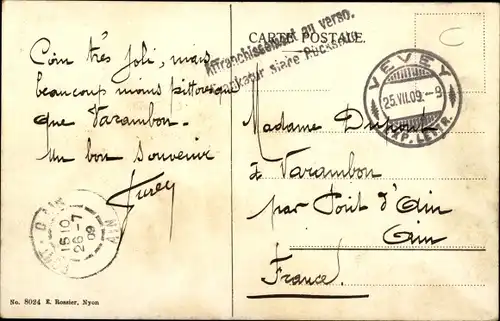 CARTE POSTALE.
Affranchissement au verso.
Frankatur siehe Rückseite
C
VEVEY
25.VII.09.-9
EXP. LETTR.
Coin très joli, mais
beaucoup moins pittoresque
que Varambon.
Un bon souvenir
Madame Dupont
à Varambon
par Pont d'Ain
Ain
France.
15 10
26-7
09
AIN
No. 8024 E. Rossier, Nyon